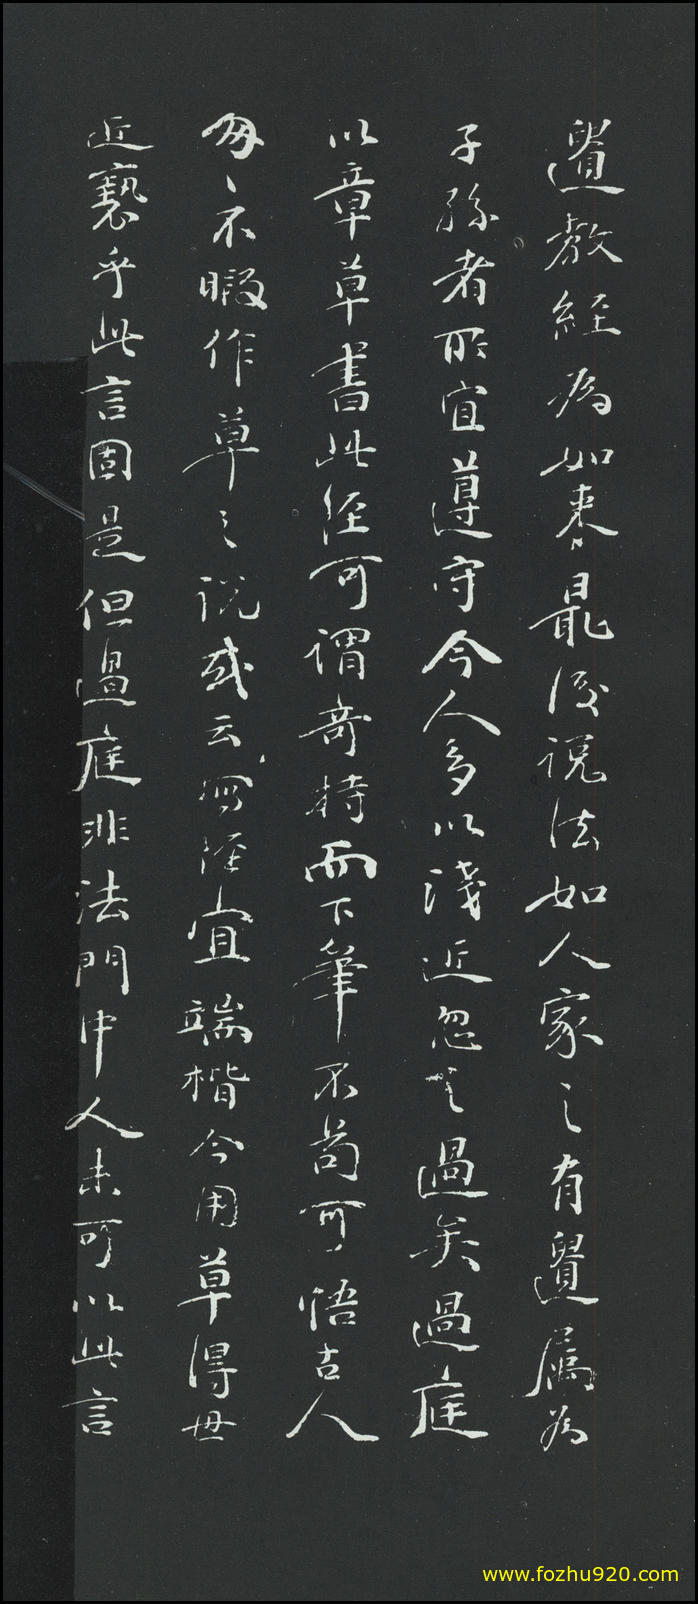 遺教經為如来最後説法如人家之有遺属為
子孫者所宜遵守今人多以淺近忽之過矣過庭
以章草書此經可謂奇特而下筆不苟可悟古人
匆〻不暇作草之説或云寫經宜端楷今用草得毋
近褻乎此言固是但過庭非法門中人未可以此言
www.fozhu920.com